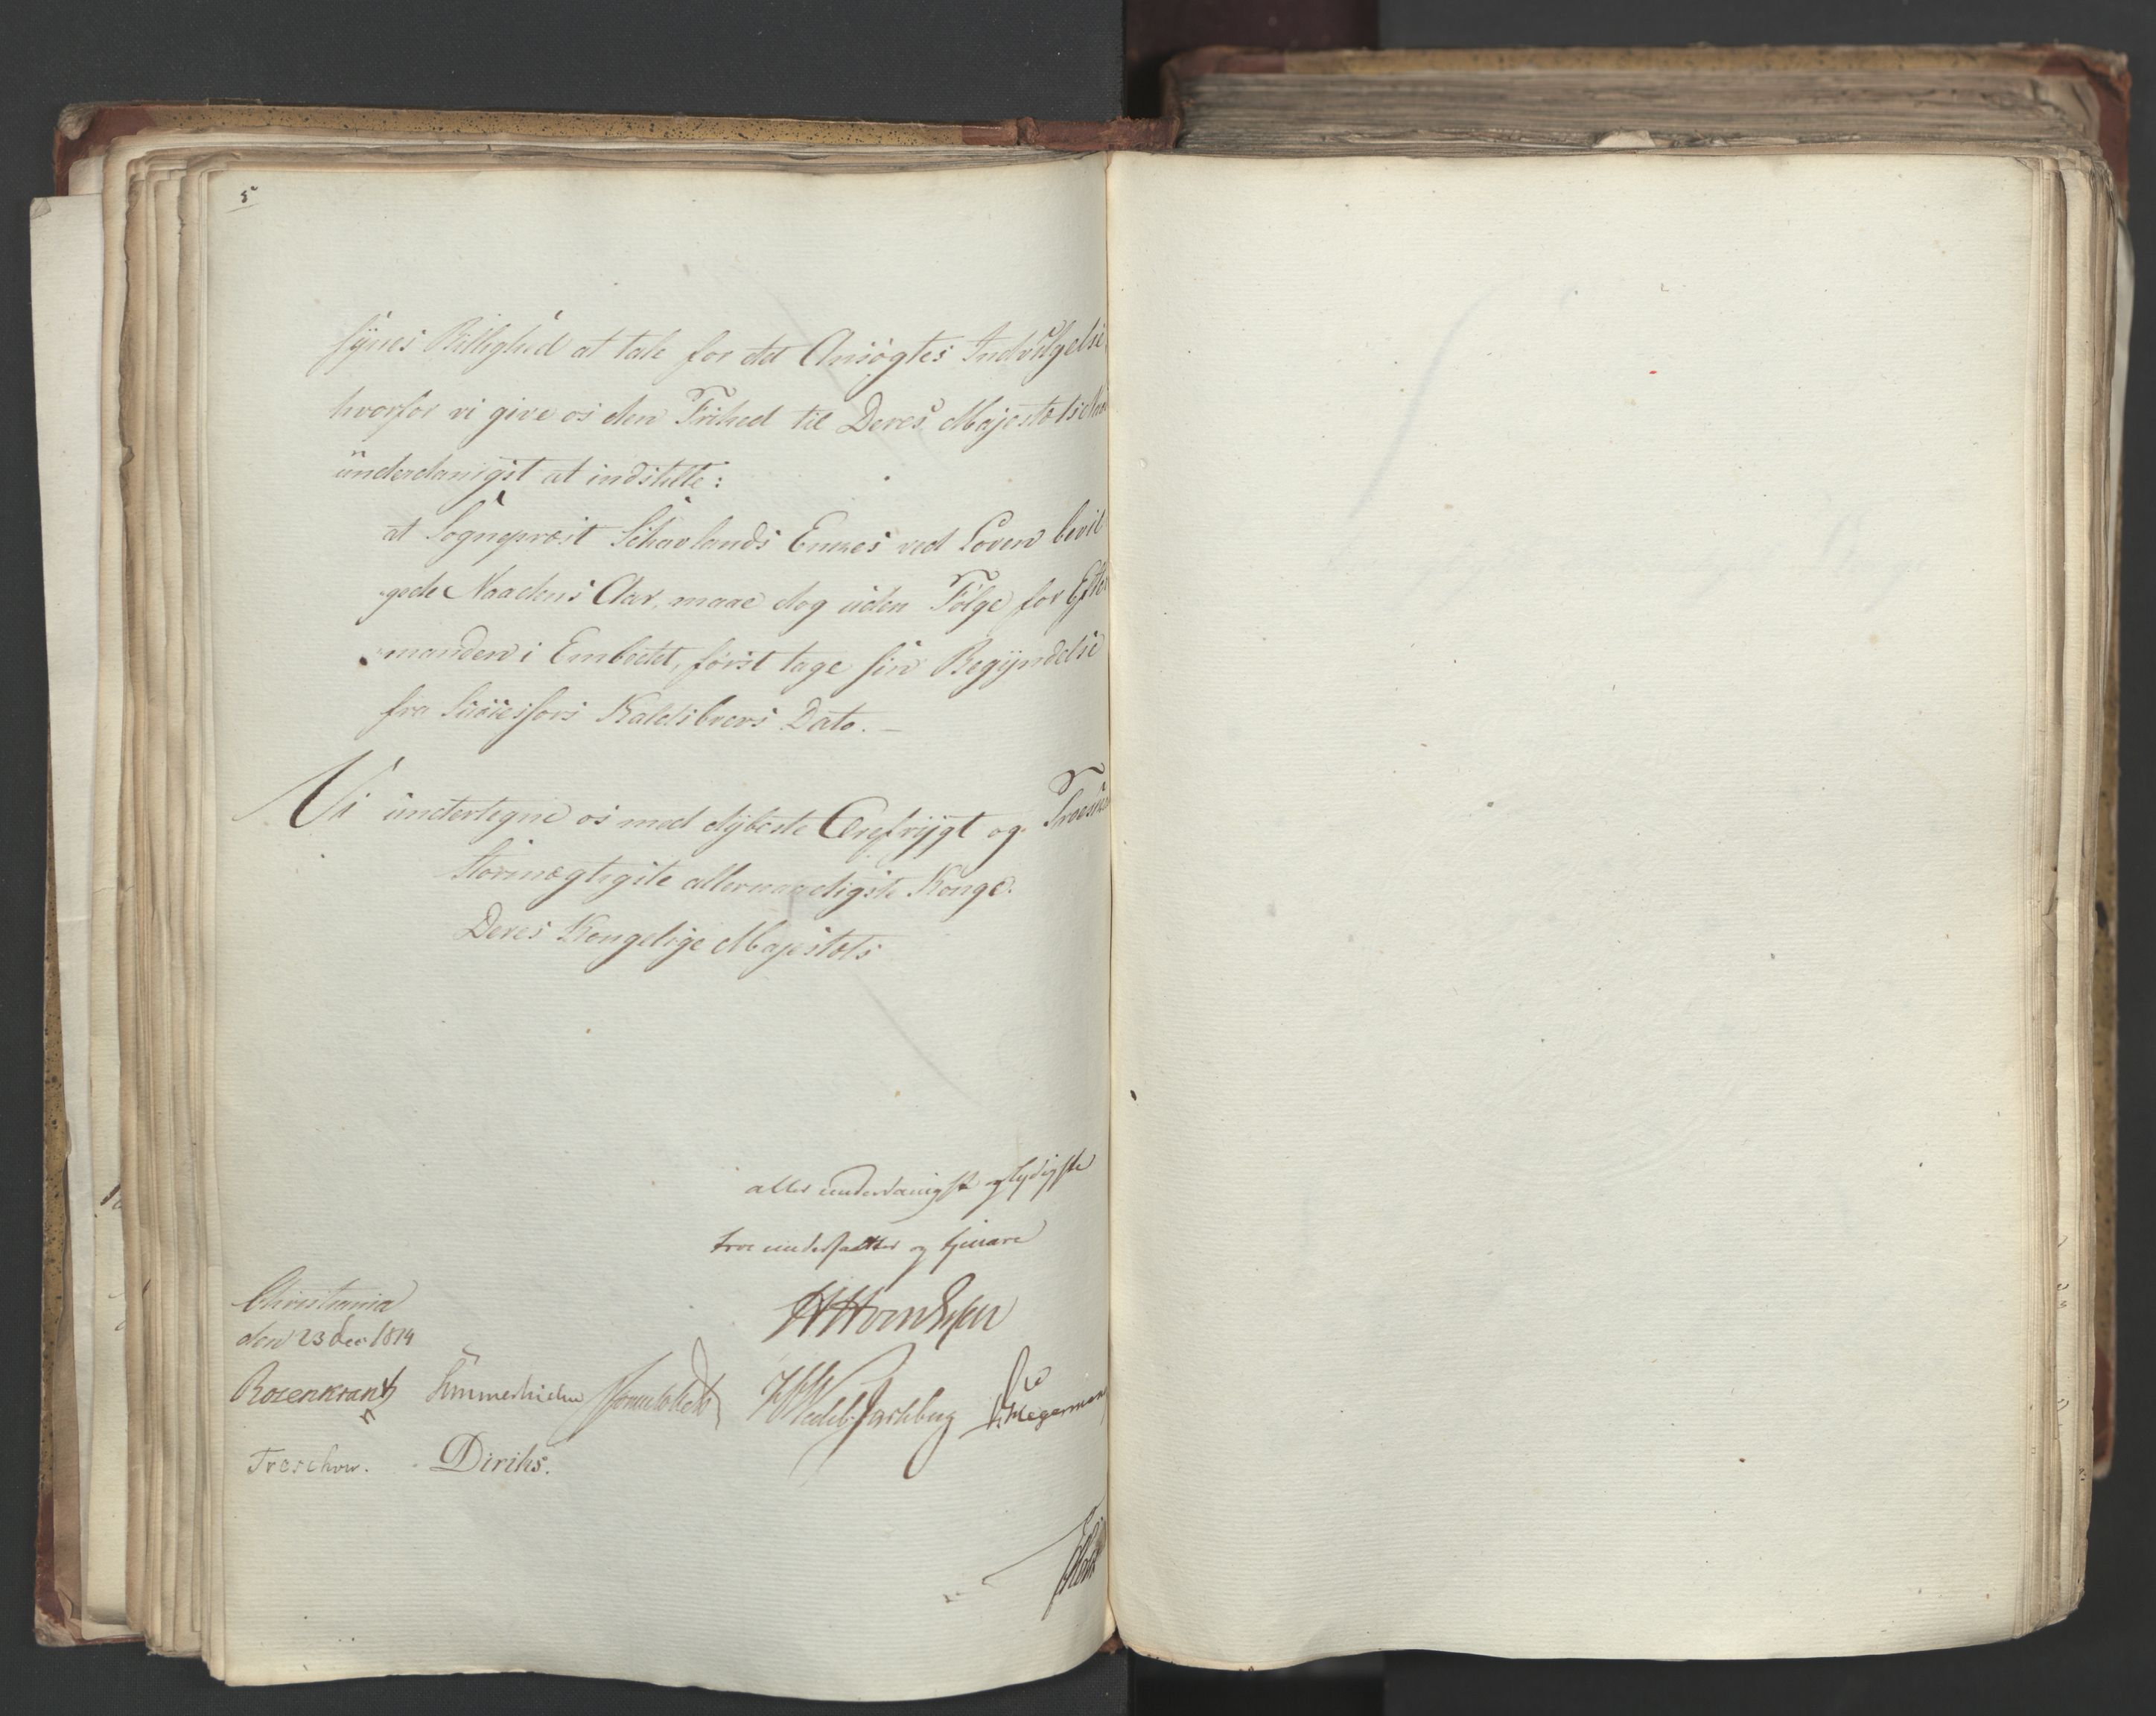 5
synes Billighed at tale for det Ansøgtes Indvilgelse
hvorfor vi give os den Frihed til Deres Majestæt
underdanigst at indstille:
at Sogneprest Schavlands Enkes ved Loven bevil
gede Naadens Aar, maae dog uden Følge for Efter
manden i Embedet, først tage sin Begyndelse
fra Successors Kaldsbrevs Dato. —
Vi undertegne os med dybeste Ærefrygt og
Stormægtigste allernaadigste Konge.
Deres Kongelige Majestæts
aller underdanigste og lydigste
troe undersaatter og tjenare
Christiania
den 23 Dec 1814
Rosenkrantz Sommerhielm Wedel Jarlsberg Hegermann
Treschow. Diriks.